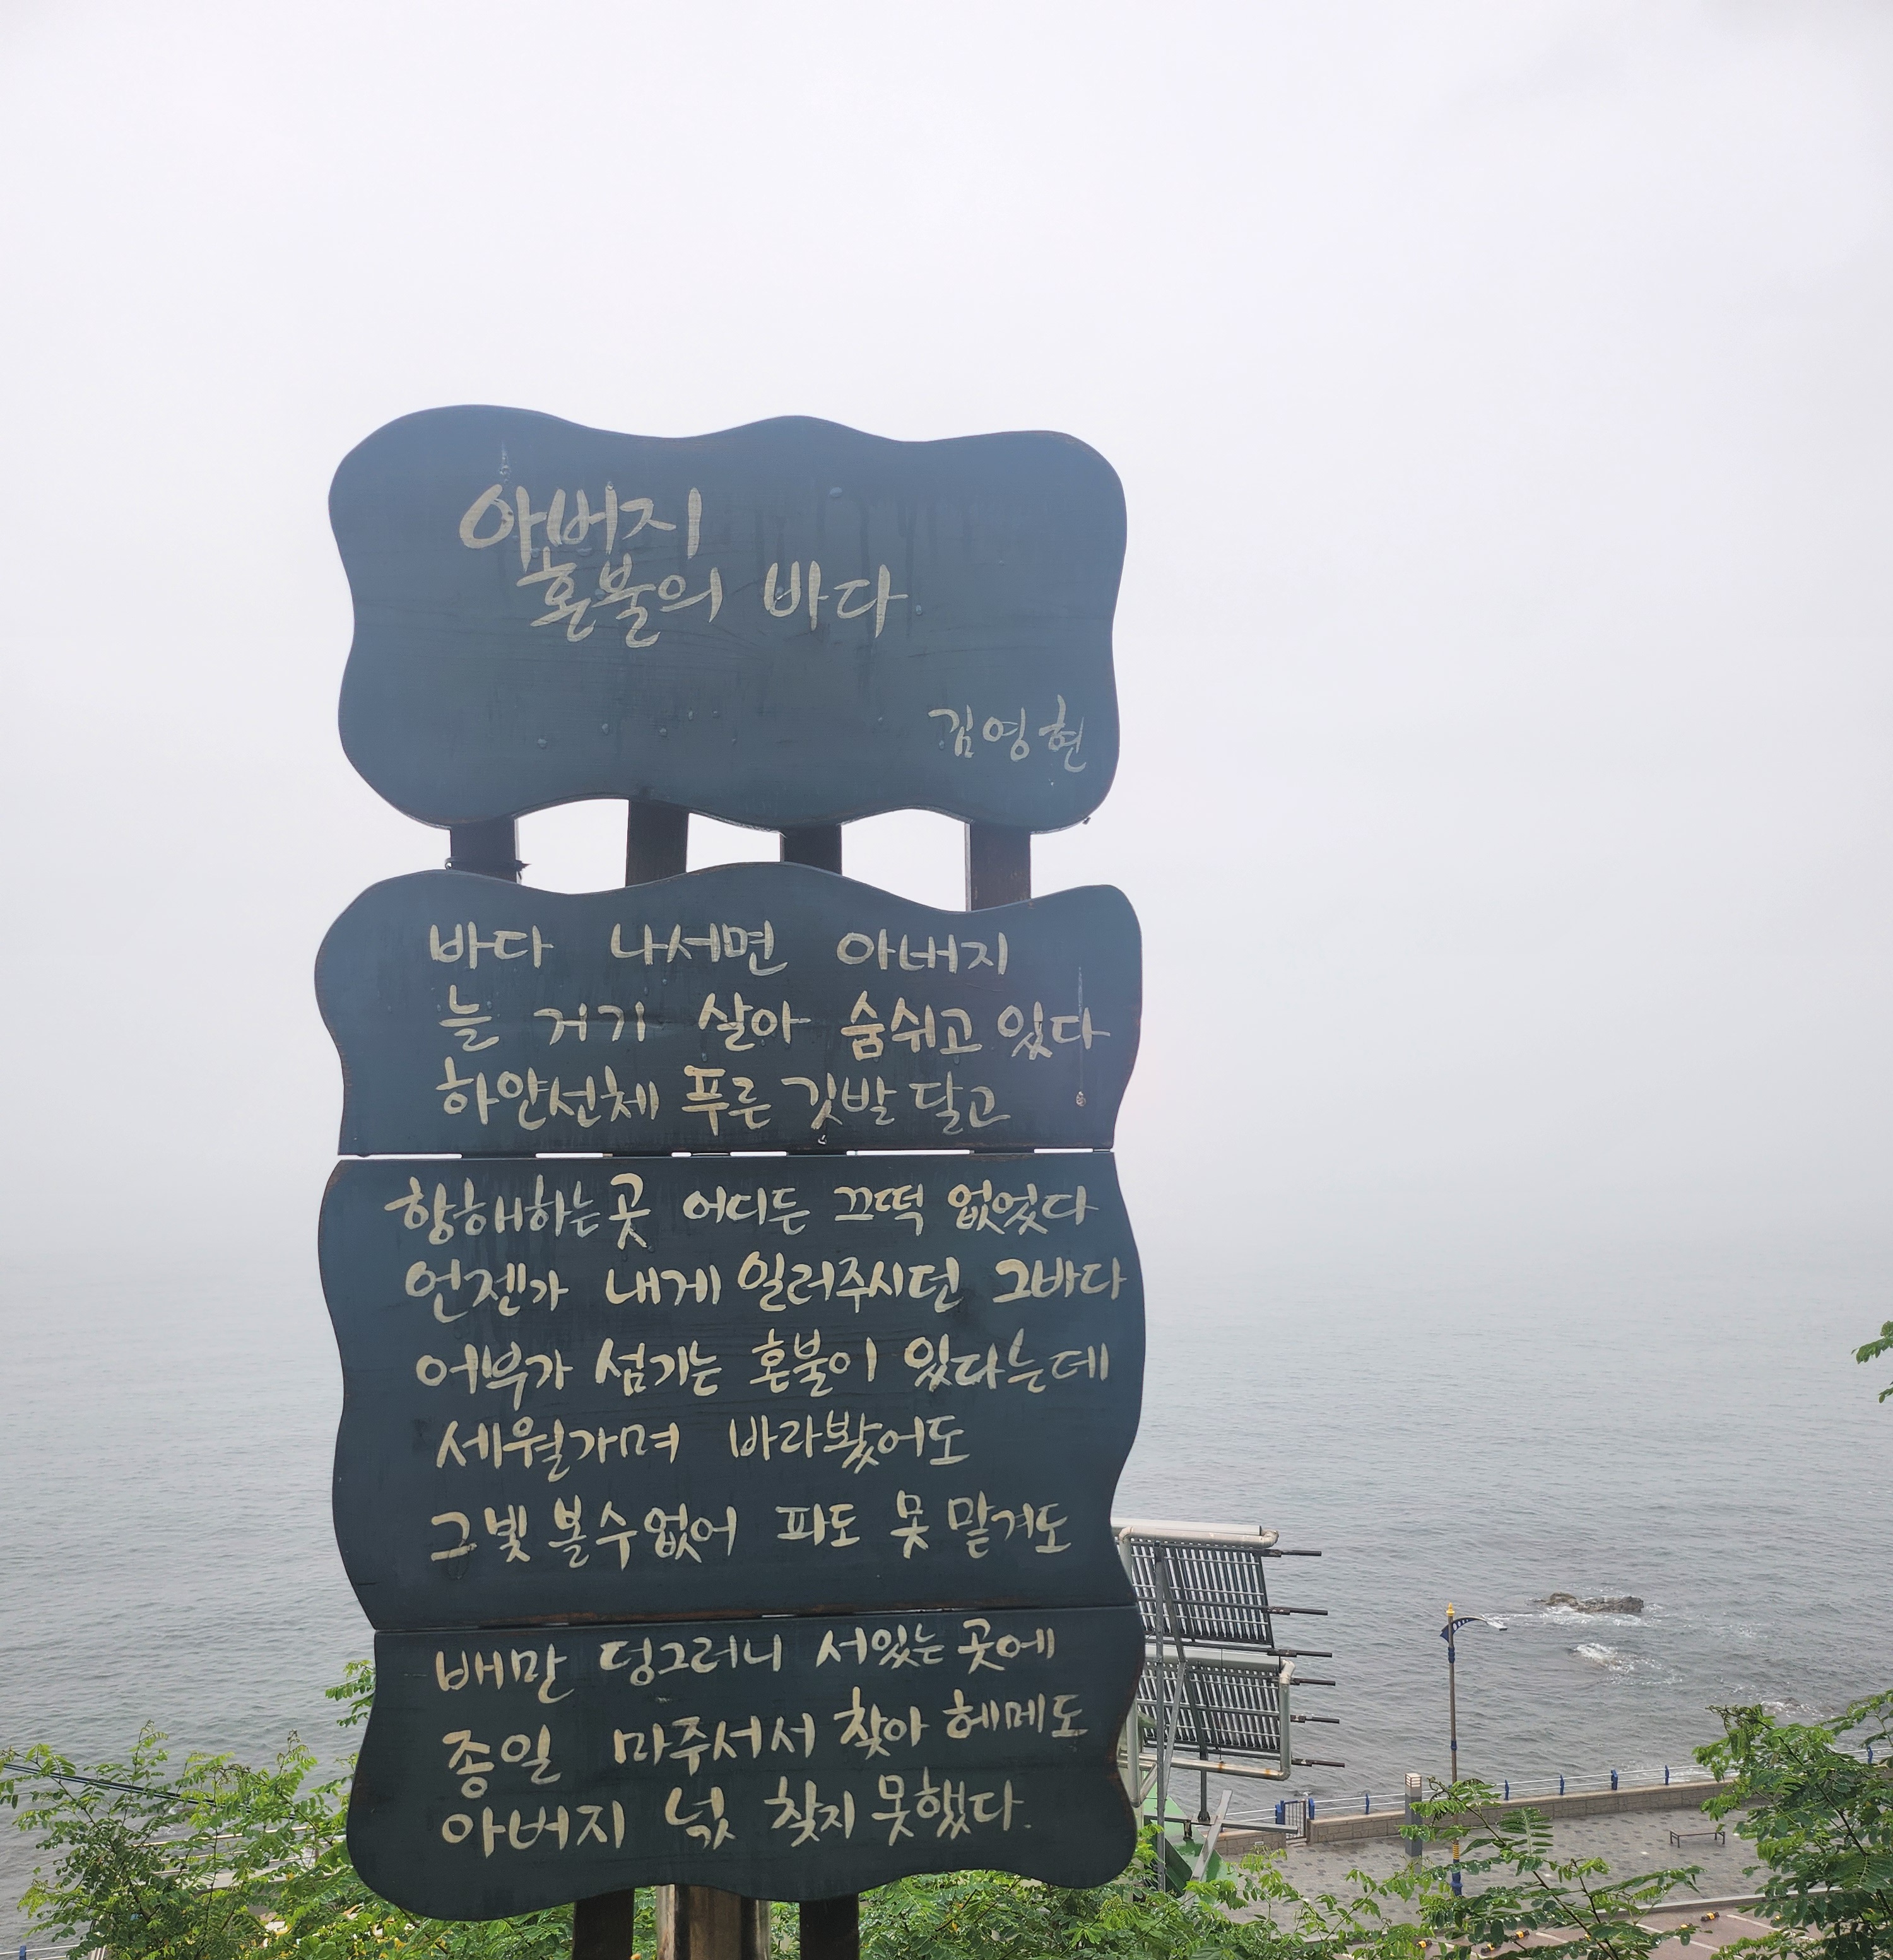 아버지
혼불의 바다
김영현
바다 나서면 아버지
늘 거기 살아 숨쉬고 있다
하얀선체 푸른 깃발 달고
항해하는곳 어디든 끄떡 없었다
언젠가 내게 일러주시던 그바다
어부가 섬기는 혼불이 있다는데
세월가며 바라봤어도
그빛 볼수없어 파도 못 맡겨도
배만 덩그러니 서있는 곳에
종일 마주서서 찾아 헤메도
아버지 넋 찾지 못했다.